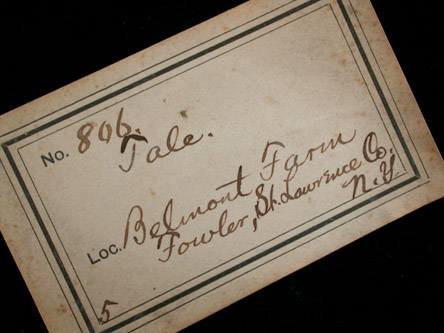 No. 806.
Talc.
Loc. Belmont Farm
Fowler, St. Lawrence Co.
N.Y
5